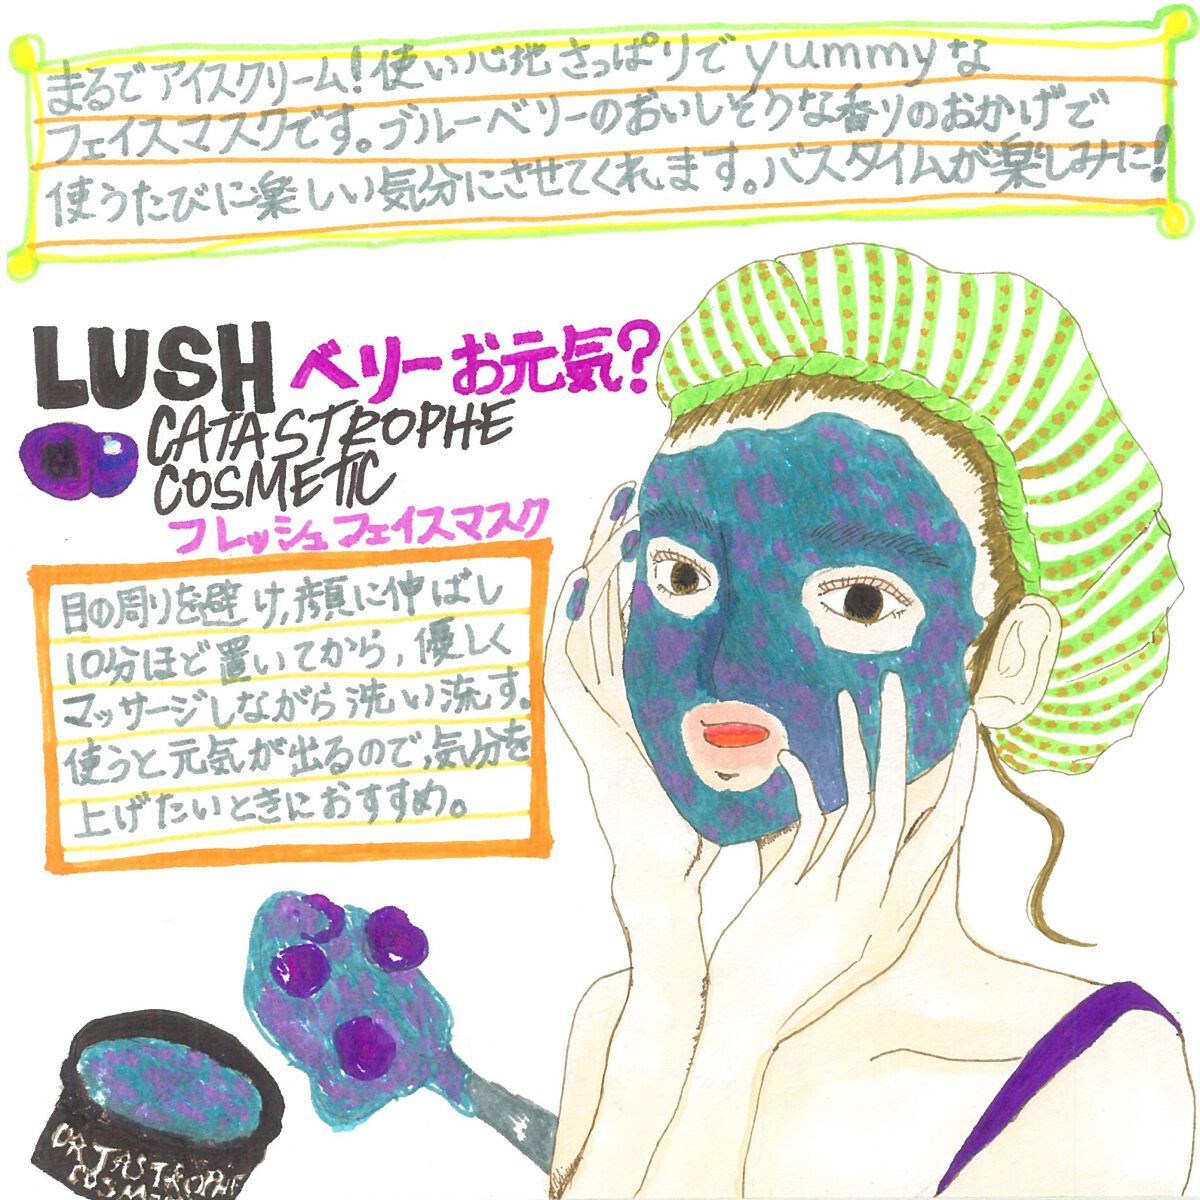 まるでアイスクリーム!使い心地さっぱりでyummyな
フェイスマスクです。ブルーベリーのおいしそうな香りのおかげで
使うたびに楽しい気分にさせてくれます。バスタイムが楽しみに!
LUSH ベリーお元気?
CATASTROPHE
COSMETIC
フレッシュフェイスマスク
目の周りを避け,顔に伸ばし
10分ほど置いてから,優しく
マッサージしながら洗い流す。
使うと元気が出るので,気分を
上げたいときにおすすめ。
CATASTROPHE
COSM